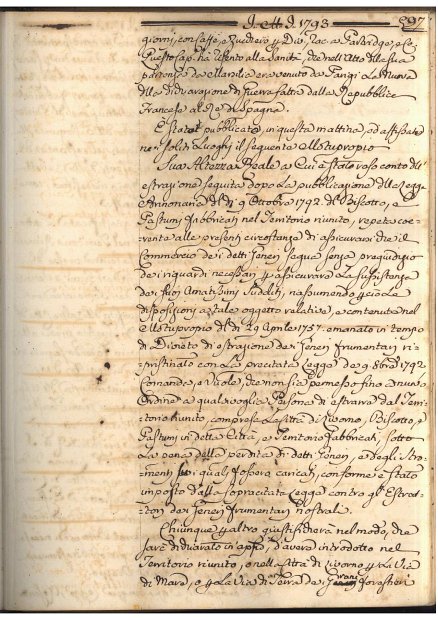 J. H. J. 1793
897
giorni, con Caffè, e Zucchero p Div. Rac. a Partridge, e C.
Questo Cap. ha riferito alla Sanità, che nell'atto della sua
partenza da era venuto da Parigi La Nuova
della dichiarazione di Guerra fatta dalla Repubblica
Francese al Re di Spagna.
È stato pubblicato in questa mattina, ed affisso
ne' Soliti Luoghi il seguente Motuproprio
Sua Altezza Reale a Cui è stato reso conto dell'
estrazione seguita dopo La pubblicazione della Legge
Annonaria de' dì 9 Ottobre 1792. del Biscotto, e
Pastumi fabbricati nel Territorio riunito, repeta coe-
rente alle presenti circostanze di assicurarsi che il
Commercio dei detti Generi segua senza pregiudizio
dei riguardi necessari p assicurare La Sussistenza
dei suoi Amatissimi Sudditi, riassumendo p ciò Le
disposizioni a tale oggetto relative, e contenute nel
Motuproprio de' dì 29 Aprile 1757. emanato in tempo
di Divieto di estrazione dei Generi frumentari ri-
pristinato con La precitata Legge de' 9. 8bre 1792
Comanda, e Vuole, che non sia permesso fino a nuovo
Ordine a qualsivoglia Persona di estrarre dal Terri-
torio riunito, compresa La Città di Livorno, Biscotto, e
Pastumi in detta Città, e Territorio fabbricati, sotto
La pena della perdita di detti Generi, e degli Stro-
menti su i quali fossero caricati, conforme è stato
imposto dalla sopracitata Legge contro gli Estrat-
tori dei Generi frumentari nostrali.
Chiunque p altro giustificherà nel modo, che
sarà dichiarato in appo, d'avere introdotto nel
Territorio riunito, o nella Città di Livorno p La Via
di Mare, o p La Via di Terra dei Grani forestieri